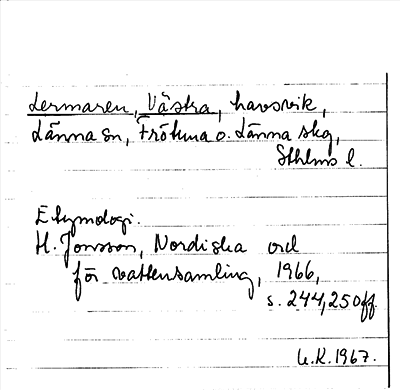 Lermaren, Västra, havsvik,
Länna sn, Frötuna o. Länna skg,
Sthlms l.
Etymologi.
H. Jonsson, Nordiska ord
för vattensamling, 1966,
s. 244, 250ff
U.K. 1967.